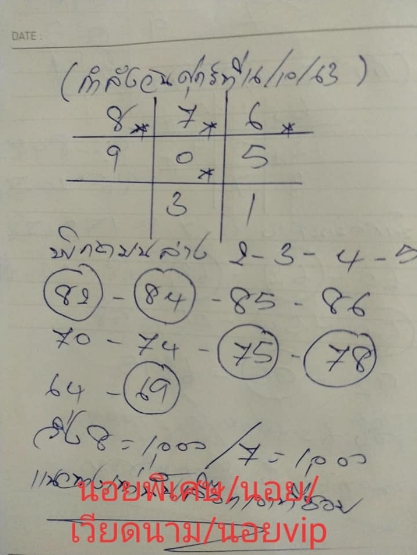 DATE :
(กำลังวันศุกร์ที่ 16/10/63)
8* 7* 6*
9 0* 5
3 1
บน ล่าง 2-3-4-5
82 - 84 - 85 - 86
70 - 74 - 75 - 78
64 - 69
วิ่ง 8 = 1,000 / 7 = 1,000
นอยพิเศษ/นอย/
เวียดนาม/นอยvip